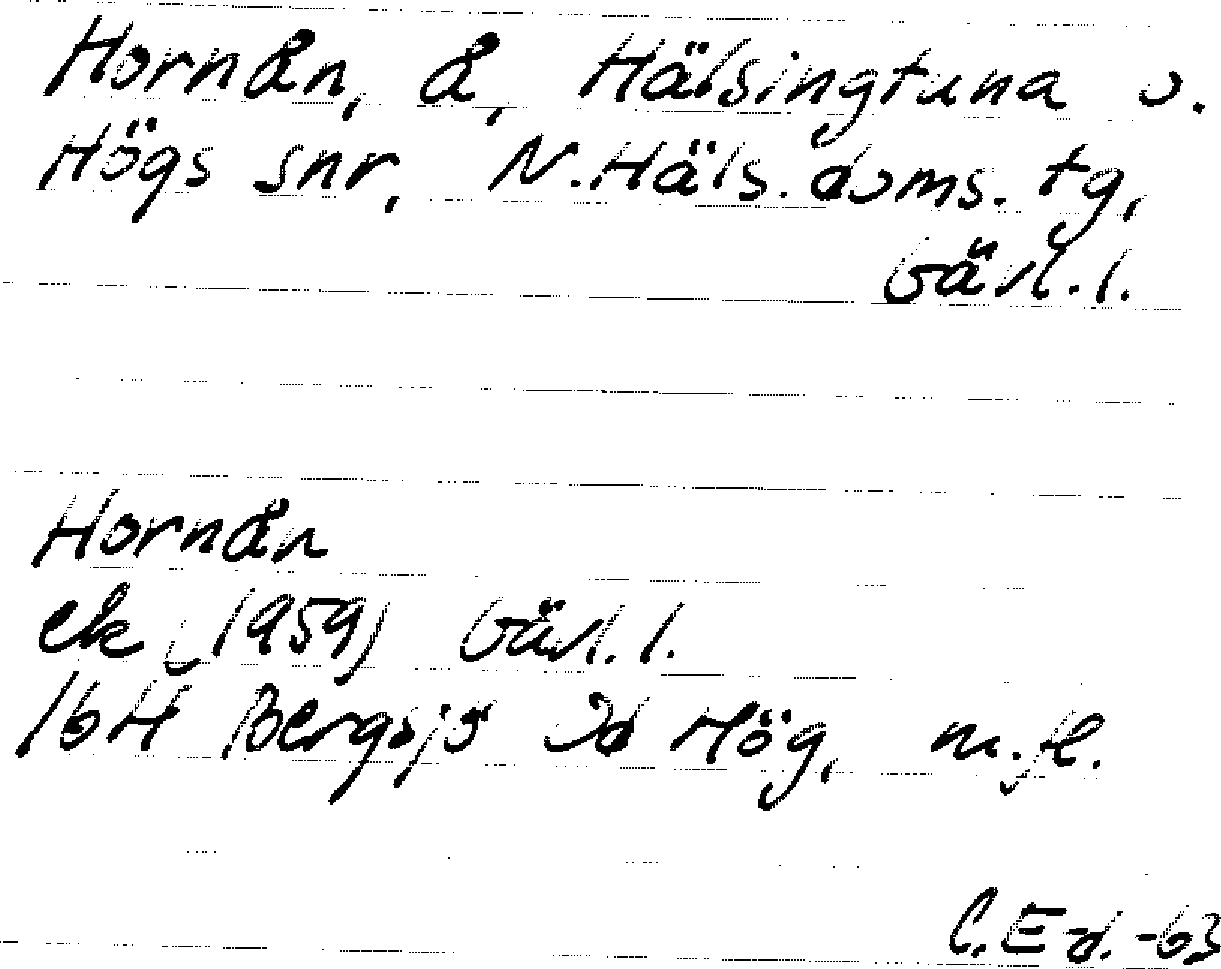 Hornån, å, Hälsingtuna o.
Högs snr, N.Häls.doms.tg,
Gävl.l.
Hornån
ek (1959) Gävl.l.
16H Bergsjö Jd Hög, m.fl.
C.E-d.-63